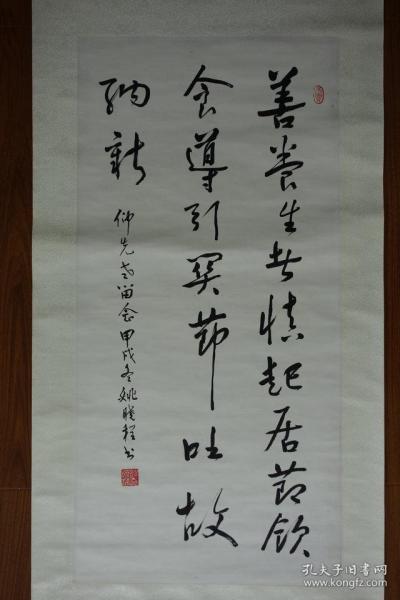 善養生者慎起居節飲
食導引關節吐故
納新
仰先老留念甲戌冬姚曉程书
孔夫子旧书网
www.kongfz.com